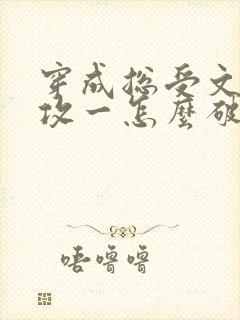 穿成总受文
攻一怎麼破
唔噜噜